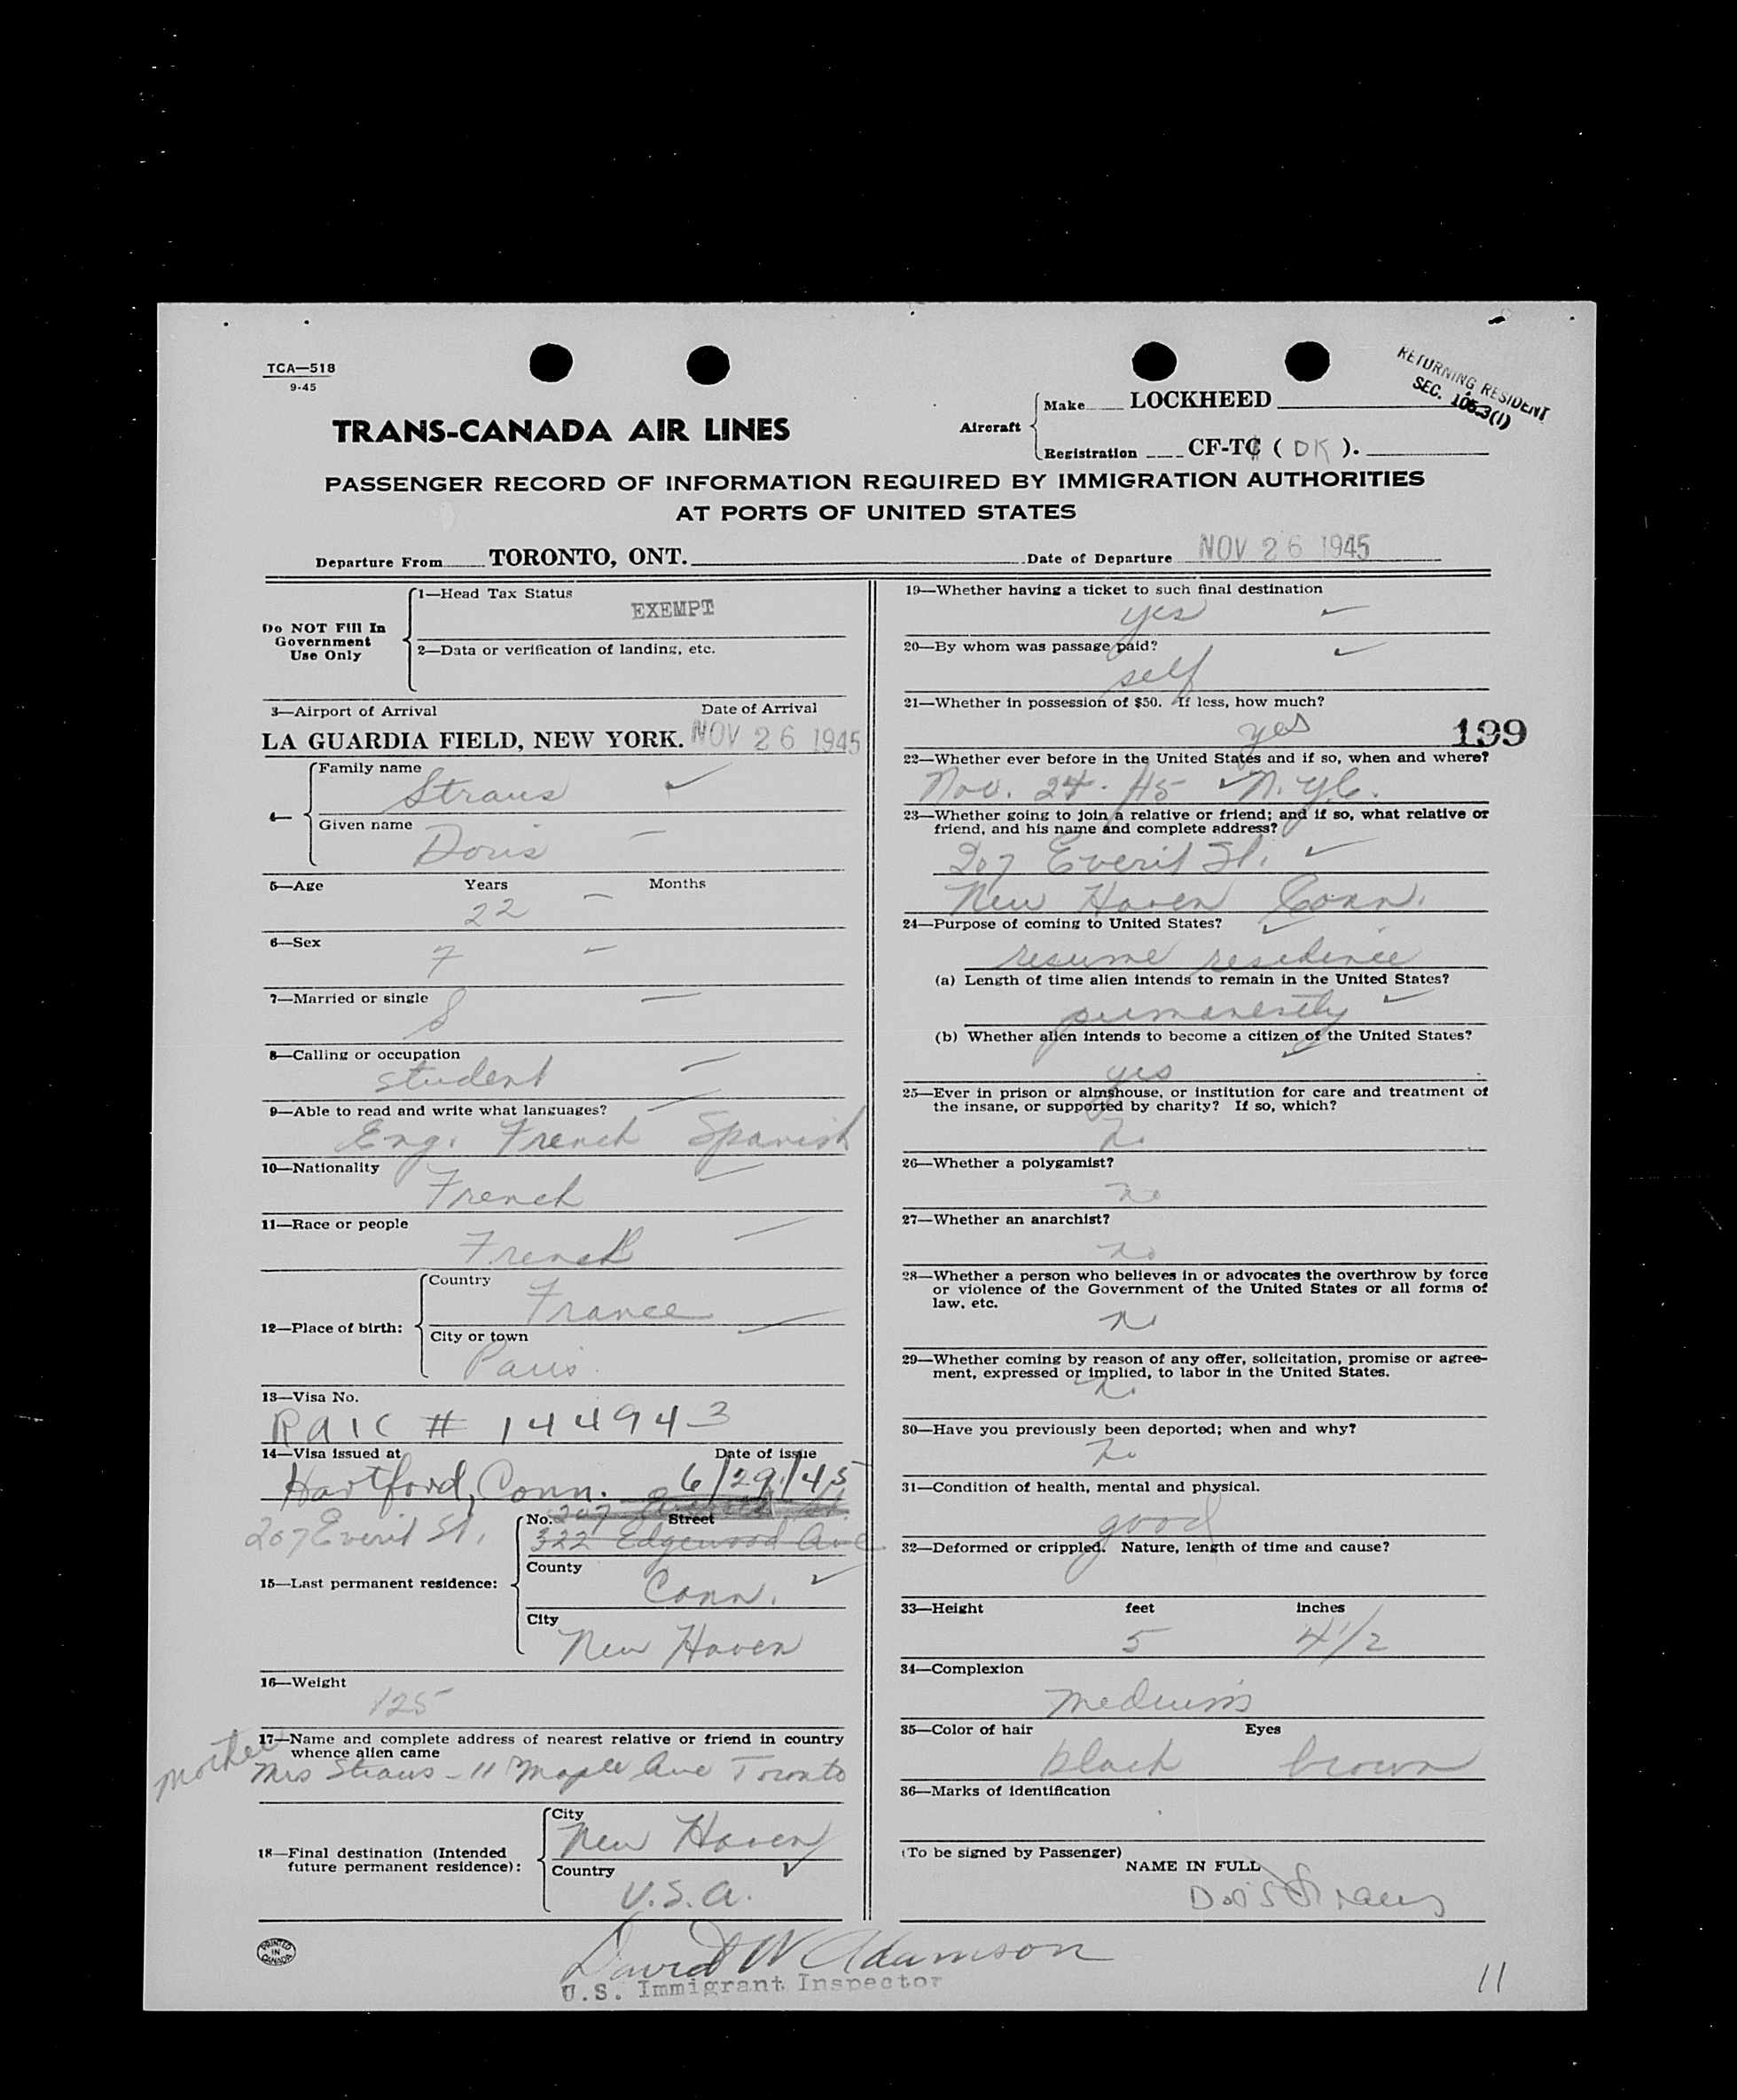 TCA—518
9-45
RETURNING RESIDENT
SEC. 175.3(1)
TRANS-CANADA AIR LINES
Aircraft
Make LOCKHEED
Registration CF-TC ( DK ).
PASSENGER RECORD OF INFORMATION REQUIRED BY IMMIGRATION AUTHORITIES
AT PORTS OF UNITED STATES
Departure From TORONTO, ONT. Date of Departure NOV 26 1945
Do NOT Fill In
Government
Use Only
1—Head Tax Status
EXEMPT
2—Data or verification of landing, etc.
3—Airport of Arrival Date of Arrival
LA GUARDIA FIELD, NEW YORK. NOV 26 1945
4—
Family name
Straus
Given name
Doris
5—Age Years Months
22
6—Sex
F
7—Married or single
S
8—Calling or occupation
student
9—Able to read and write what languages?
Eng. French Spanish
10—Nationality
French
11—Race or people
French
12—Place of birth:
Country
France
City or town
Paris.
13—Visa No.
RAIC # 144943
14—Visa issued at Date of issue
Hartford, Conn. 6/29/45
207 Everit St.
15—Last permanent residence:
No. 207 Street
322 Edgewood Ave
County
Conn.
City
New Haven
16—Weight
125
17—Name and complete address of nearest relative or friend in country
whence alien came
mother
Mrs Straus - 11 Maple Ave Toronto
18—Final destination (Intended
future permanent residence):
City
New Haven
Country
U.S.A.
19—Whether having a ticket to such final destination
yes
20—By whom was passage paid?
self
21—Whether in possession of $50. If less, how much?
yes
199
22—Whether ever before in the United States and if so, when and where?
Nov. 24. 45 N.Y.C.
23—Whether going to join a relative or friend; and if so, what relative or
friend, and his name and complete address?
207 Everit St.
New Haven Conn.
24—Purpose of coming to United States?
resume residence
(a) Length of time alien intends to remain in the United States?
permanently
(b) Whether alien intends to become a citizen of the United States?
yes
25—Ever in prison or almshouse, or institution for care and treatment of
the insane, or supported by charity? If so, which?
no
26—Whether a polygamist?
no
27—Whether an anarchist?
no
28—Whether a person who believes in or advocates the overthrow by force
or violence of the Government of the United States or all forms of
law, etc.
no
29—Whether coming by reason of any offer, solicitation, promise or agree-
ment, expressed or implied, to labor in the United States.
no
30—Have you previously been deported; when and why?
no
31—Condition of health, mental and physical.
good
32—Deformed or crippled. Nature, length of time and cause?
33—Height feet inches
5 4 1/2
34—Complexion
medium
35—Color of hair Eyes
black brown
36—Marks of identification
(To be signed by Passenger)
NAME IN FULL
Doris Straus
PRINTED
IN
CANADA
David W Adamson
U.S. Immigrant Inspector
11